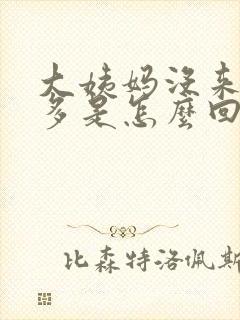 大姨妈没来
多是怎麼回
比森特洛佩斯